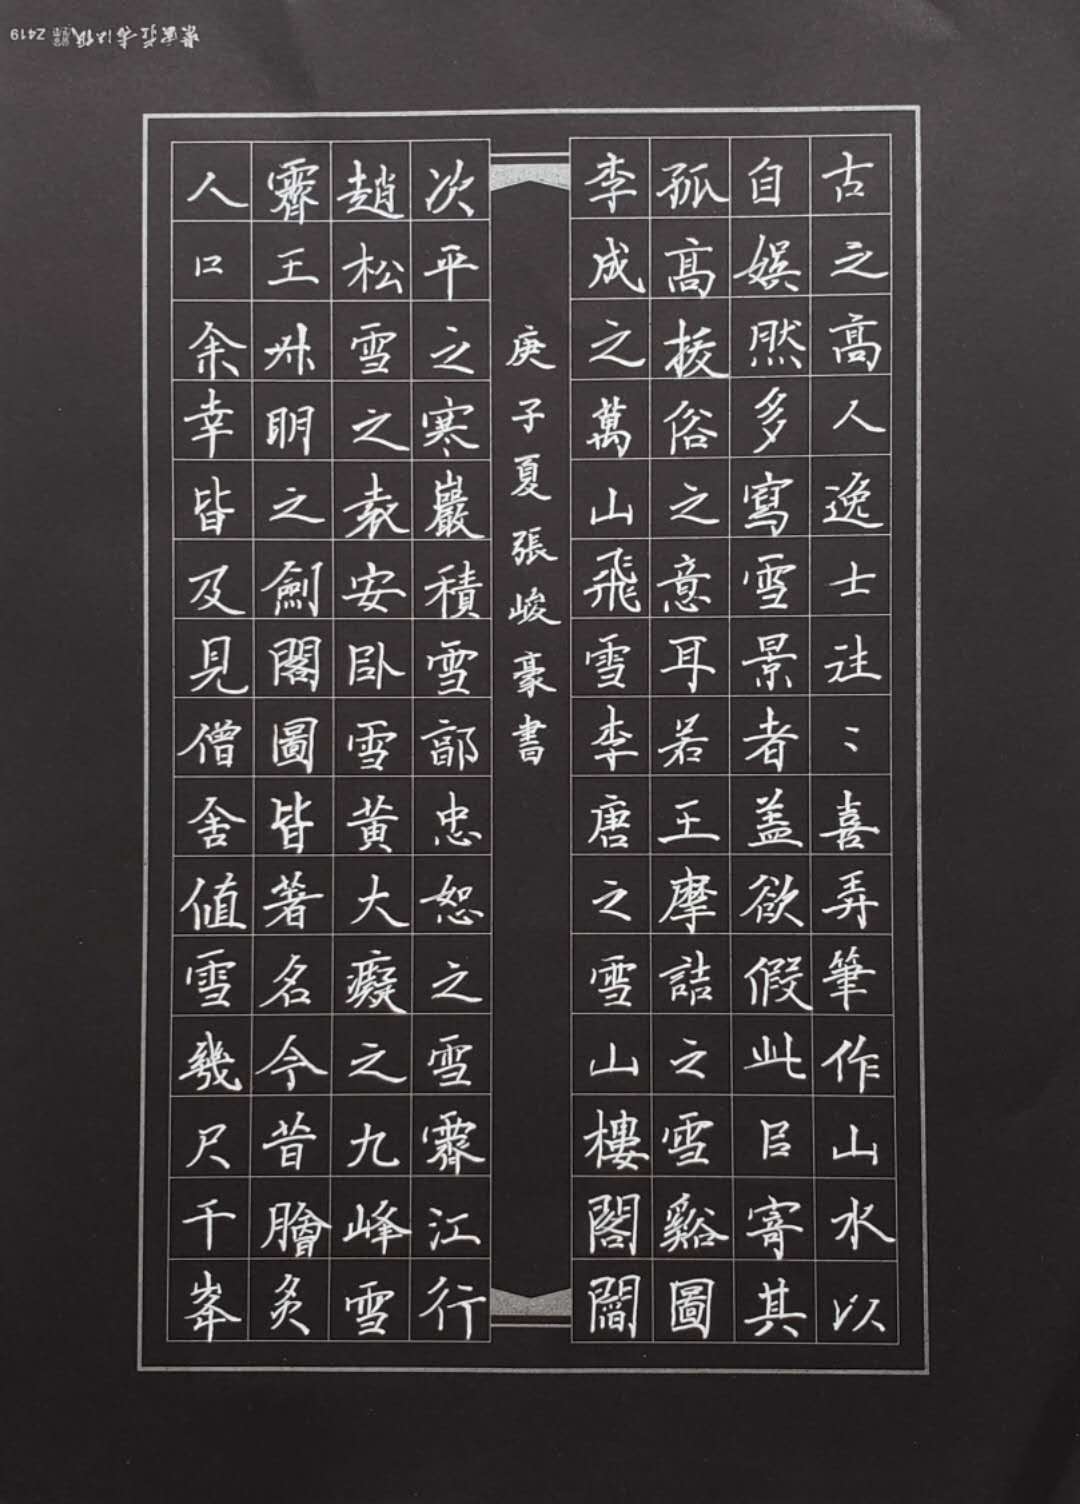 古之高人逸士往〻喜弄筆作山水以
自娛然多寫雪景者盖欲假此㠯寄其
孤高拔俗之意耳若王摩詰之雪谿圖
李成之萬山飛雪李唐之雪山樓閣閻
庚子夏張峻豪書
次平之寒巖積雪郭忠恕之雪霽江行
趙松雪之袁安臥雪黃大癡之九峰雪
霽王叔明之劍閣圖皆著名今昔膾炙
人口余幸皆及見僧舍值雪幾尺千峯
Z419